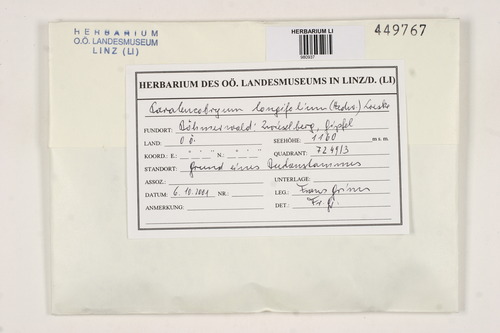 HERBARIUM
O.Ö. LANDESMUSEUM
LINZ (LI)
HERBARIUM LI
980937
449767
HERBARIUM DES OÖ. LANDESMUSEUMS IN LINZ/D. (LI)
Paraleucobryum longifolium (Hedw.) Loeske
FUNDORT: Böhmerwald: Zwieselberg, Gipfel
LAND: O.Ö. SEEHÖHE: 1160 m s. m.
KOORD.: E.: ° ' " N.: ° ' " QUADRANT: 7249/3
STANDORT: Grund eines
ASSOZ.: UNTERLAGE:
DATUM: 6.10.2001 NR.: LEG.: Franz Grims
ANMERKUNG: DET.: Fr. G.